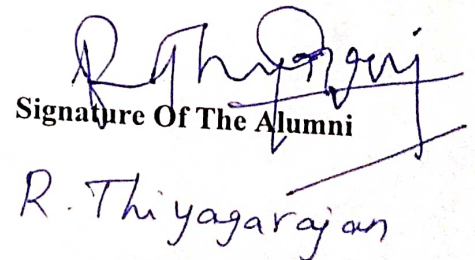 R Thiyagaraj
Signature Of The Alumni
R. Thiyagarajan